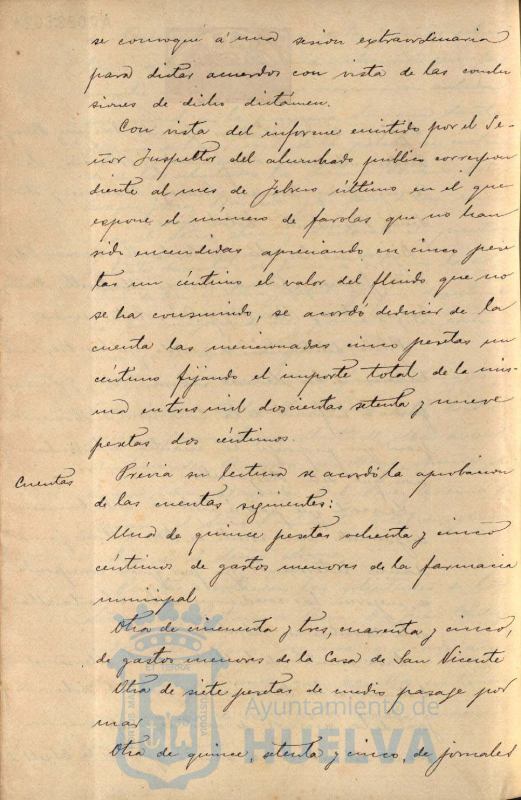 se convoque á una sesion extraordinaria
para dictar acuerdos con vista de las conclu
siones de dicho dictámen.
Con vista del informe emitido por el Se-
ñor Inspector del alumbrado público correspon
diente al mes de Febrero último en el que
espone el número de farolas que no han
sido encendidas apreciando en cinco pese
tas un céntimo el valor del fluido que no
se ha consumido, se acordó deducir de la
cuenta las mencionadas cinco pesetas un
céntimo fijando el importe total de la mis-
ma en tres mil doscientas setenta y nueve
pesetas dos céntimos.
Cuentas
Prévia su lectura se acordó la aprobacion
de las cuentas siguientes:
Una de quince pesetas ochenta y cinco
céntimos de gastos menores de la farmacia
municipal
Otra de cincuenta y tres, cuarenta y cinco,
de gastos menores de la Casa de San Vicente
Otra de siete pesetas de medio pasage por
mar
Otra de quince, setenta y cinco, de jornales
Ayuntamiento de
HUELVA